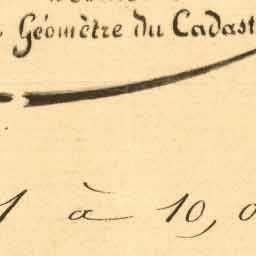 Géomètre du Cadast
1 à 10,0